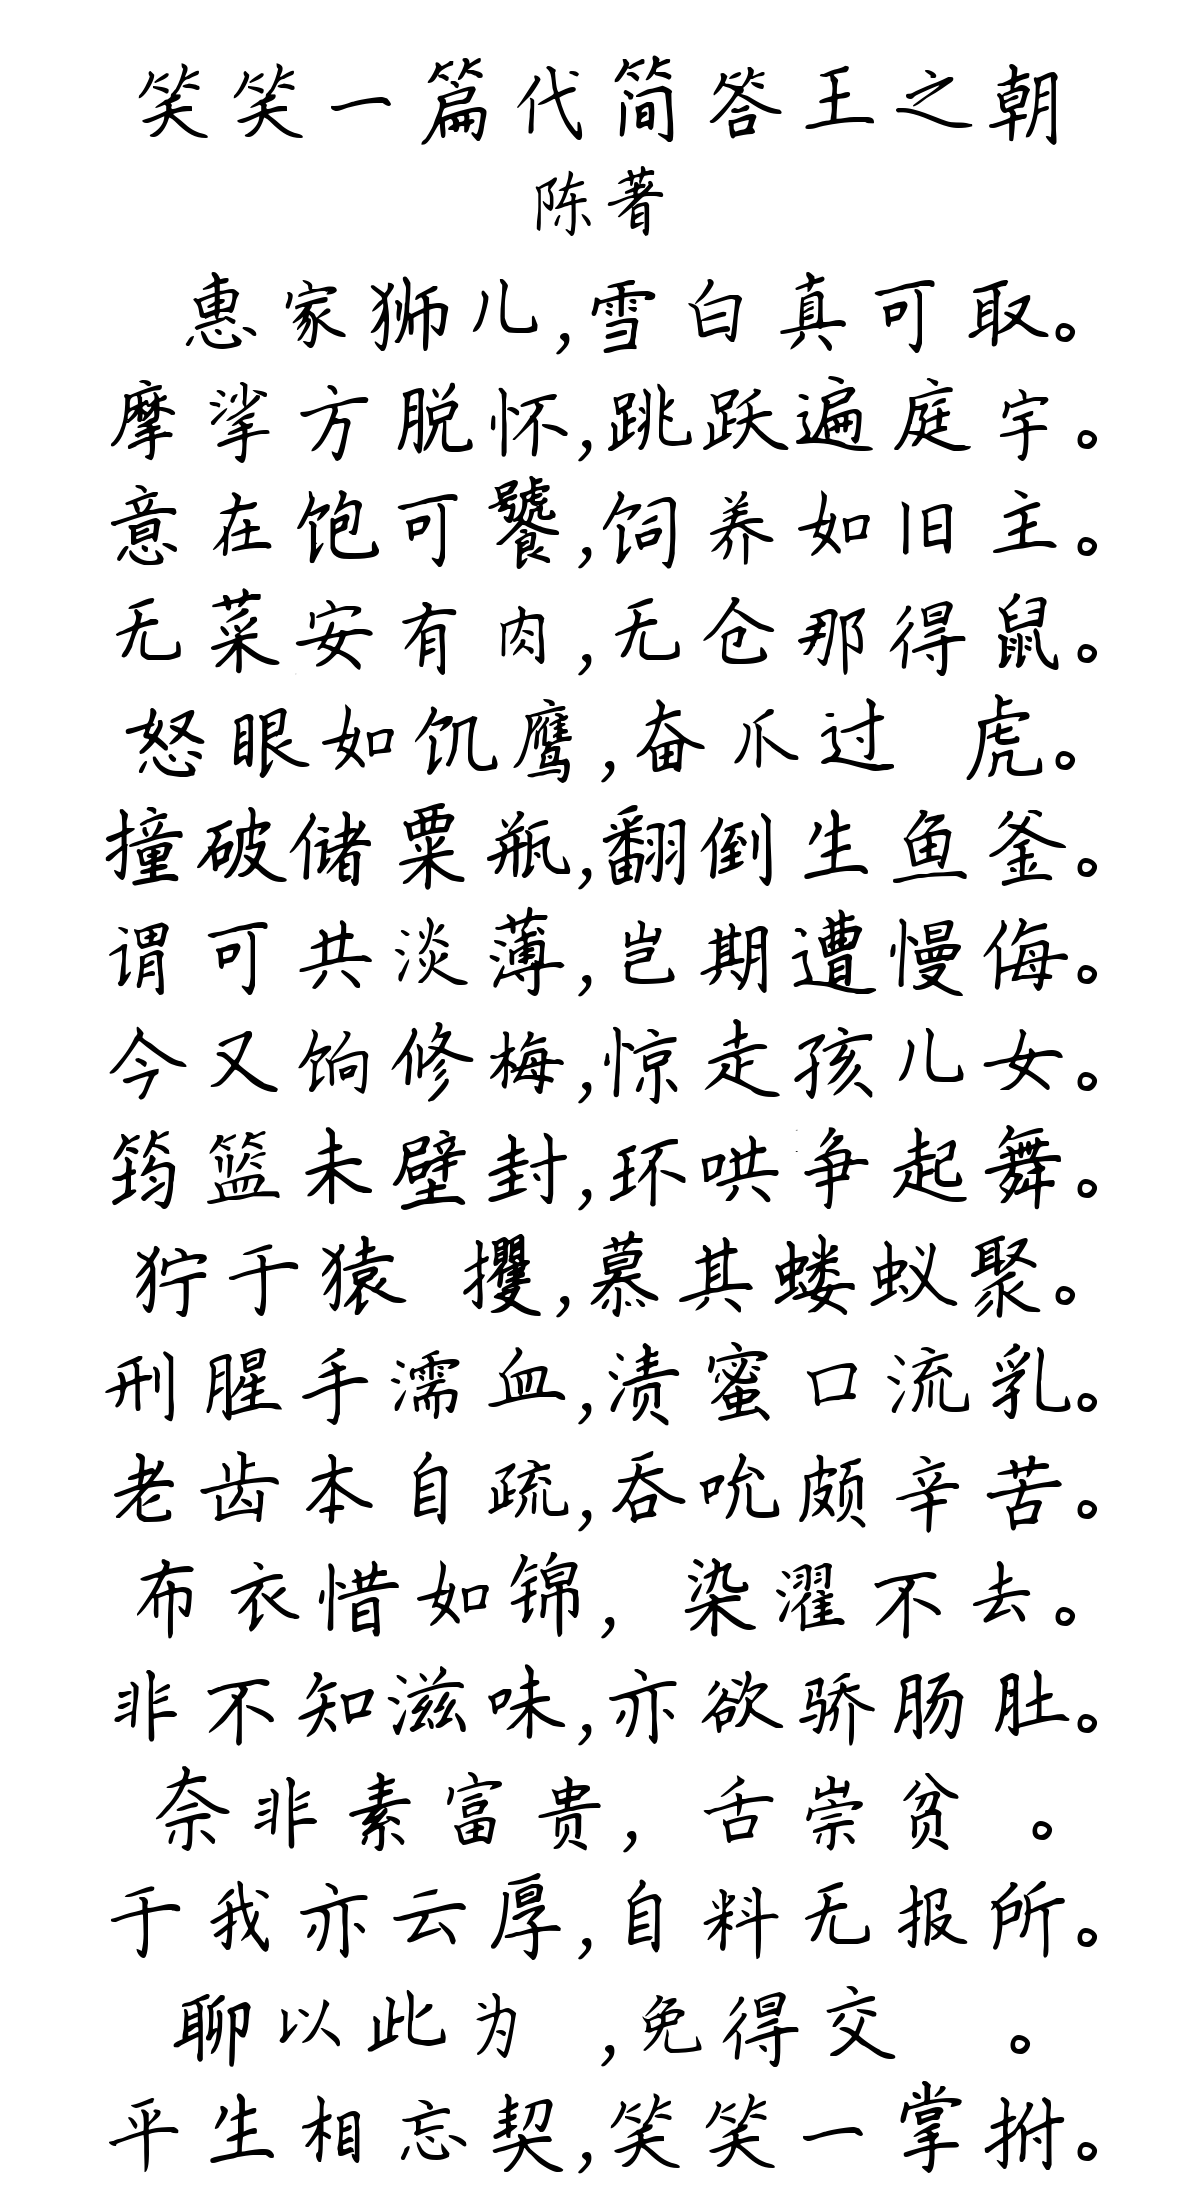 笑笑一篇代简答王之朝
陈著
惠家狮儿,雪白真可取。
摩挲方脱怀,跳跃遍庭宇。
意在饱可饕,饲养如旧主。
无菜安有肉,无仓那得鼠。
怒眼如饥鹰,奋爪过 虎。
撞破储粟瓶,翻倒生鱼釜。
谓可共淡薄,岂期遭慢侮。
今又饷修梅,惊走孩儿女。
筠篮未壁封,环哄争起舞。
狞于猿 攫,慕其蝼蚁聚。
刑腥手濡血,渍蜜口流乳。
老齿本自疏,吞吮颇辛苦。
布衣惜如锦, 染濯不去。
非不知滋味,亦欲骄肠肚。
奈非素富贵, 舌崇贫 。
于我亦云厚,自料无报所。
聊以此为 ,免得交 。
平生相忘契,笑笑一掌拊。